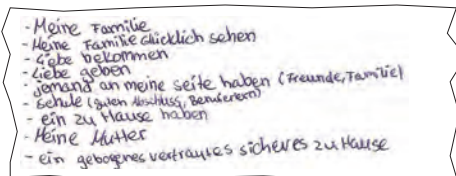 - Meine Familie
- Meine Familie Glücklich sehen
- Liebe bekommen
- Liebe geben
- Jemand an meine Seite haben (Freunde, Familie)
- Schule (guten Abschluss, Beruf erlern)
- ein zu Hause haben
- Meine Mutter
- ein geborgenes vertrautes sicheres zu Hause